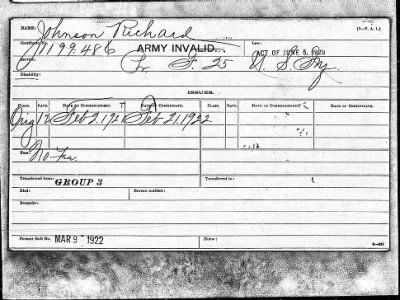 NAME: Johnson Richard [3—P. A. I.]
Certificate: 1199.486 ARMY INVALID. Law: ACT OF JUNE 5, 1920
Service: F. 25 U. S. Inf.
Disability:
ISSUES.
CLASS. RATE. DATE OF COMMENCEMENT. DATE OF CERTIFICATE. CLASS. RATE. DATE OF COMMENCEMENT. DATE OF CERTIFICATE.
Orig 12 Feb 2. 1921 Feb 21. 1922
Fee: No Fee
Transferred from: GROUP 3 Transferred to:
Died: Bureau notified:
Remarks:
Former Roll No. MAR 9 - 1922 Home: